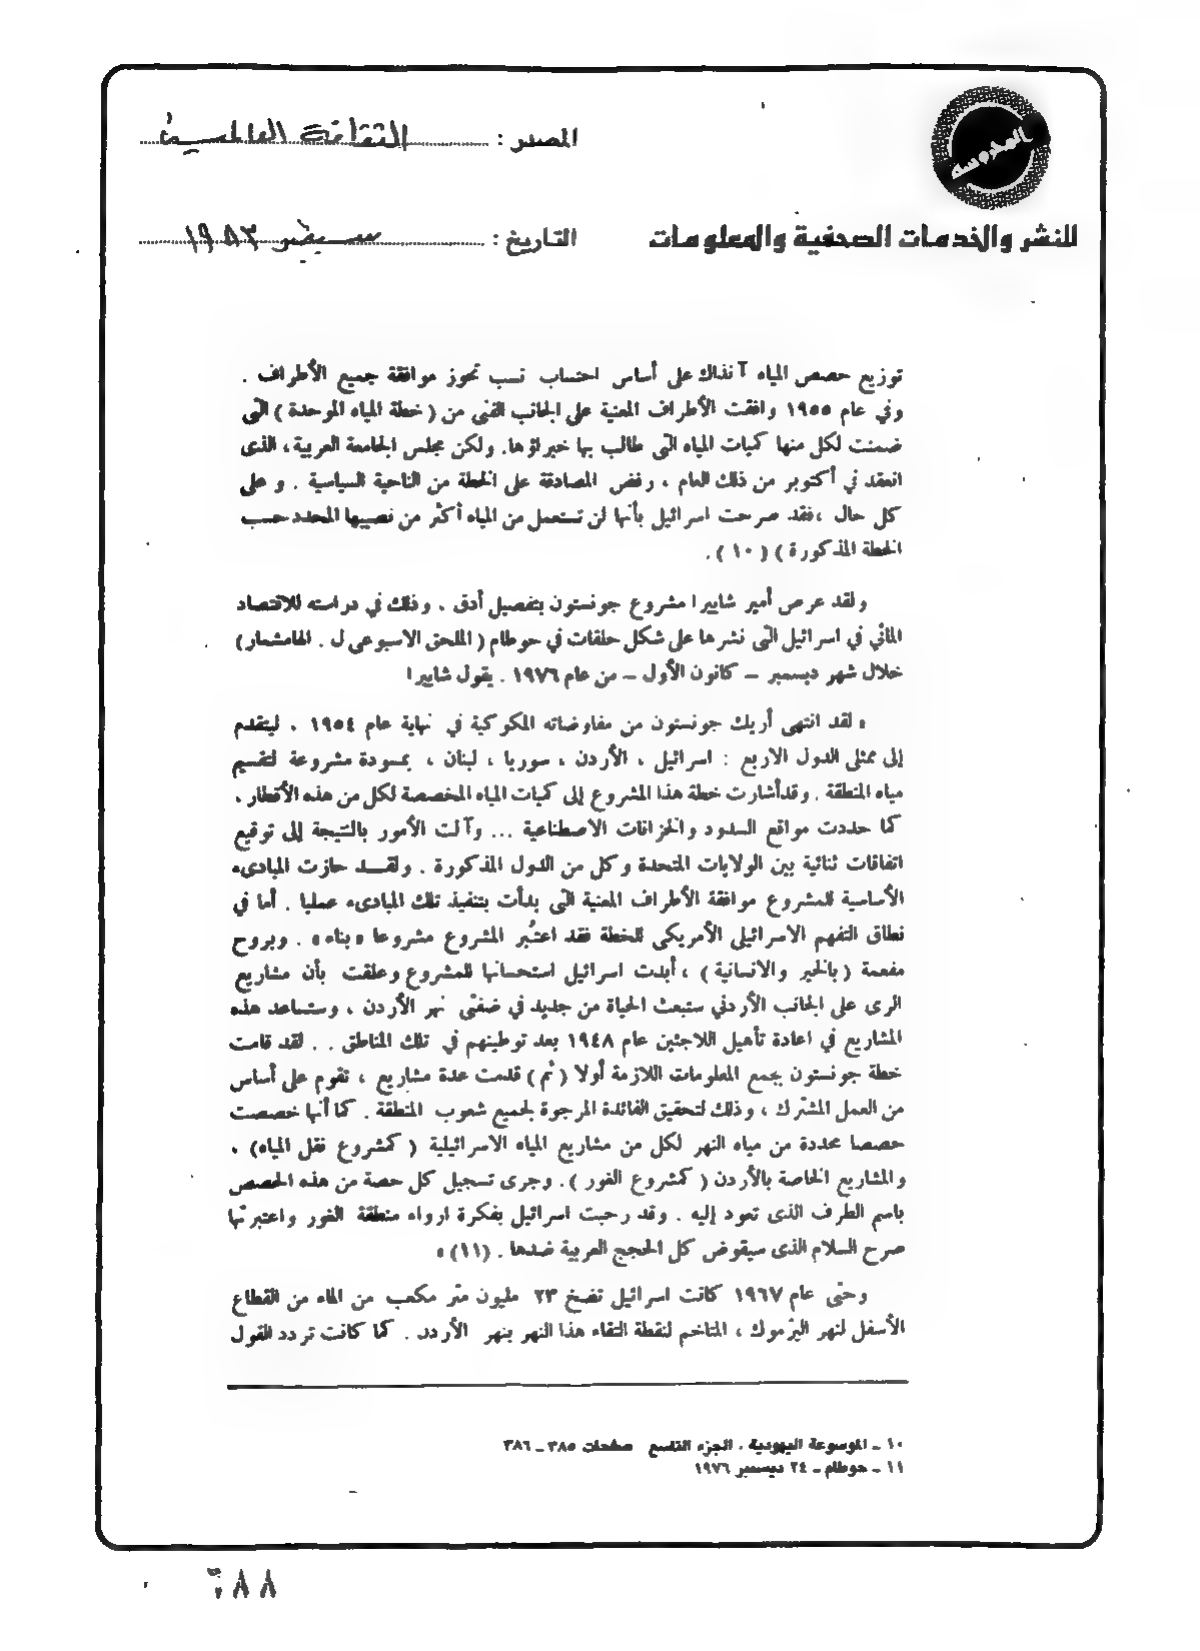 المدوسه
المصدر : الثقافة العالمية
للنشر والخدمات الصحفية والمعلومات
التاريخ : سبتمبر ١٩٨٣
توزيع حصص المياه آنذاك على أساس احتساب نسب تحوز موافقة جميع الأطراف .
وفي عام ١٩٥٥ وافقت الأطراف المعنية على الجانب الفنى من ( خطة المياه الموحدة ) التى
ضمنت لكل منها كميات المياه التى طالب بها خبراؤها. ولكن مجلس الجامعة العربية ، الذى
انعقد في أكتوبر من ذلك العام ، رفض المصادقة على الخطة من الناحية السياسية . وعلى
كل حال ،فقد صرحت اسرائيل بأنها لن تستعمل من المياه أكثر من نصيبها المحدد حسب
الخطة المذكورة ) ( ١٠ ) .
ولقد عرض أمير شابيرا مشروع جونستون بتفصيل أدق ، وذلك في دراسته للاقتصاد
المائي في اسرائيل التى نشرها على شكل حلقات في حوطام ( الملحق الاسبوعى ل . الهامشمار )
خلال شهر ديسمبر – كانون الأول – من عام ١٩٧٦ . يقول شابيرا
« لقد انتهى أريك جونستون من مفاوضاته المكوكية في نهاية عام ١٩٥٤ ، ليتقدم
إلى ممثلى الدول الاربع : اسرائيل ، الأردن ، سوريا ، لبنان ، بمسودة مشروعة لتقسيم
مياه المنطقة . وقدأشارت خطة هذا المشروع إلى كميات المياه المخصصة لكل من هذه الأقطار ،
كما حددت مواقع السدود والخزانات الاصطناعية ... وآلت الأمور بالنتيجة إلى توقيع
اتفاقات ثنائية بين الولايات المتحدة وكل من الدول المذكورة . ولقـد حازت المبادىء
الأساسية للمشروع موافقة الأطراف المعنية التى بدأت بتنفيذ تلك المبادىء عمليا . أما في
نطاق التفهم الاسرائيلى الأمريكى للخطة فقد اعتُبر المشروع مشروعا «بناء» . وبروح
مفعمة ( بالخير والانسانية ) ، أبدت اسرائيل استحسانها للمشروع وعلقت بأن مشاريع
الرى على الجانب الأردني ستبعث الحياة من جديد في ضفتى نهر الأردن ، وستساعد هذه
المشاريع في اعادة تأهيل اللاجئين عام ١٩٤٨ بعد توطينهم في تلك المناطق . . لقد قامت
خطة جونستون بجمع المعلومات اللازمة أولا ( ثم ) قدمت عدة مشاريع ، تقوم على أساس
من العمل المشترك ، وذلك لتحقيق الفائدة المرجوة لجميع شعوب المنطقة . كما أنها خصصت
حصصا محددة من مياه النهر لكل من مشاريع المياه الاسرائيلية ( كمشروع نقل المياه) ،
والمشاريع الخاصة بالأردن ( كمشروع الغور ) . وجرى تسجيل كل حصة من هذه الحصص
باسم الطرف الذى تعود إليه . وقد رحبت اسرائيل بفكرة ارواء منطقة الغور واعتبرتها
صرح السلام الذى سيقوض كل الحجج العربية ضدها . (١١) »
وحتى عام ١٩٦٧ كانت اسرائيل تضخ ٢٣ مليون متر مكعب من الماء من القطاع
الأسفل لنهر اليرموك ، المتاخم لنقطة التقاء هذا النهر بنهر الأردن . كما كانت تردد القول
١٠ – الموسوعة اليهودية ، الجزء التاسع صفحات ٣٨٥ – ٣٨٦
١١ – حوطام – ٢٤ ديسمبر ١٩٧٦